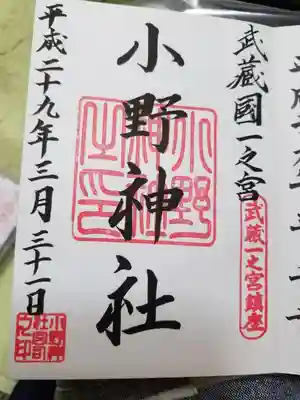 武蔵國一之宮
武蔵一之宮鎮座
小野神社
小野神社之印
平成二十九年三月三十一日